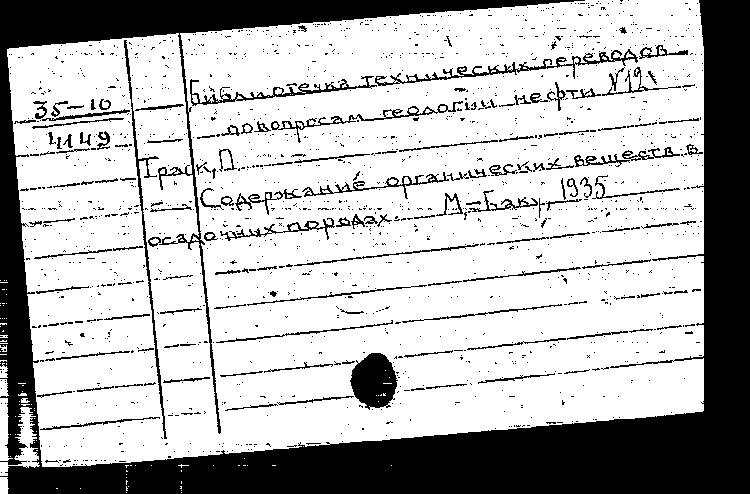 35-10
4149
Библиотечка технических переводов
по вопросам геологии нефти №12
Траск, П.
Содержание органических веществ в
осадочных породах. М.-Баку, 1935